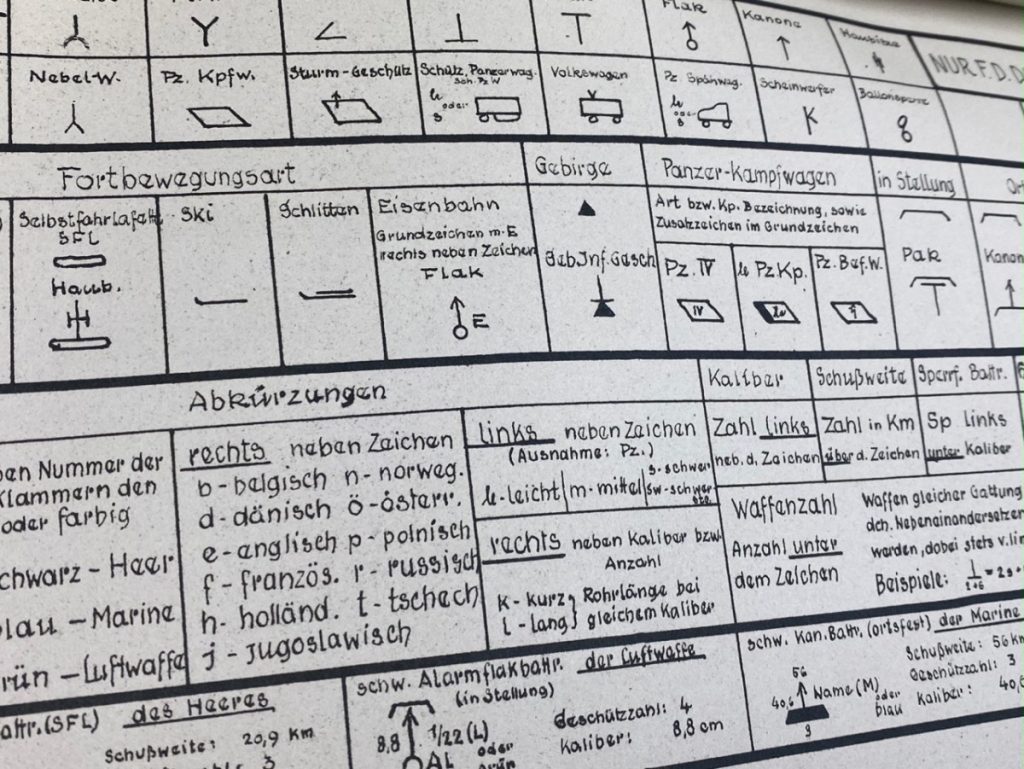 Flak
Kanone
Haubitze
NUR F. D. D
Nebel-W.
Pz. Kpfw.
Sturm-Geschütz
Schütz. Panzerwag.
Sch. Pz W
le
oder
s
Volkswagen
Pz. Spähwag.
le
oder
s
Scheinwerfer
Ballonsperre
Fortbewegungsart
Gebirge
Panzer-Kampfwagen
in Stellung
Ort
Selbstfahrlafett
SFL
Haub.
Ski
Schlitten
Eisenbahn
Grundzeichen m. E
rechts neben Zeichen
Flak
E
Geb. Inf. Gesch
Art bzw. Kp. Bezeichnung, sowie
Zusatzzeichen im Grundzeichen
Pz. IV
IV
le Pz Kp.
le
Pz. Bef. W.
Pak
Kanon
Abkürzungen
Kaliber
Schußweite
Sperrf. Battr.
ben Nummer der
Klammern den
oder farbig
chwarz - Heer
blau - Marine
rün - Luftwaffe
rechts neben Zeichen
b - belgisch n - norweg.
d - dänisch ö - österr.
e - englisch p - polnisch
f - französ. r - russisch
h - holländ. t - tschech
j - jugoslawisch
links neben Zeichen
(Ausnahme: Pz.)
le - leicht
m - mittel
s - schwer
sw - schwer
ste.
rechts neben Kaliber bzw.
Anzahl
K - kurz } Rohrlänge bei
l - lang } gleichem Kaliber
Zahl links
neb. d. Zeichen
Zahl in Km
über d. Zeichen
Sp links
unter Kaliber
Waffenzahl
Anzahl unter
dem Zeichen
Waffen gleicher Gattung
dch. Nebeneinandersetzen
werden, dabei stets v. lin
Beispiele: 1/1+6 = 2s +
attr. (SFL) des Heeres
Schußweite: 20,9 Km
3
schw. Alarmflakbattr. der Luftwaffe
(in Stellung)
8,8
1/22 (L)
oder
grün
AL
Geschützzahl: 4
Kaliber: 8,8 cm
schw. Kan. Battr. (ortsfest) der Marine
56
40,6
Name (M)
oder
blau
3
Schußweite: 56 km
Geschützzahl: 3
Kaliber: 40,6